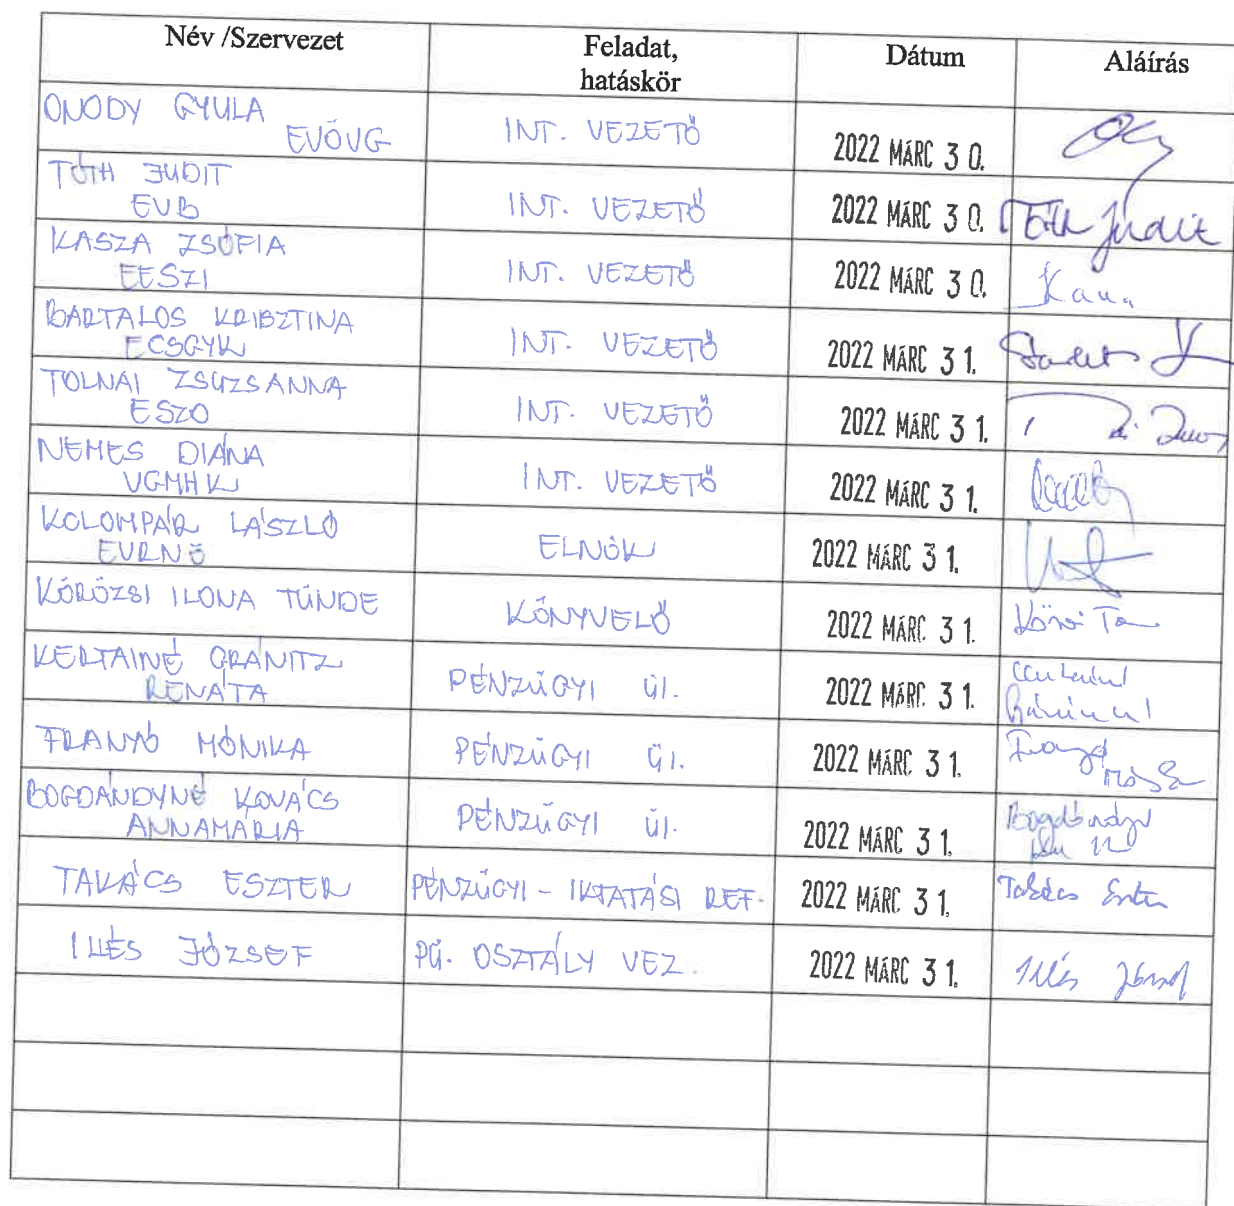 Név /Szervezet Feladat, Dátum Aláírás
hatáskör
ONODY GYULA
EVÖVG INT. VEZETŐ 2022 MÁRC 30.
TÓTH JUDIT
EVB INT. VEZETŐ 2022 MÁRC 30. Tóth Judit
KASZA ZSÓFIA
EESZI INT. VEZETŐ 2022 MÁRC 30.
BARTALOS KRISZTINA
ECSGYK INT. VEZETŐ 2022 MÁRC 31.
TOLNAI ZSUZSANNA
ESZO INT. VEZETŐ 2022 MÁRC 31.
NEMES DIÁNA
VGMHK INT. VEZETŐ 2022 MÁRC 31.
KOLOMPÁR LÁSZLÓ
EVRNÖ ELNÖK 2022 MÁRC 31.
KÖRÖZSI ILONA TÜNDE KÖNYVELŐ 2022 MÁRC 31.
KERTAINÉ GRÁNITZ
RENÁTA PÉNZÜGYI ÜI. 2022 MÁRC 31.
FRANYÓ MÓNIKA PÉNZÜGYI ÜI. 2022 MÁRC 31.
BOGDÁNDYNÉ KOVÁCS
ANNAMÁRIA PÉNZÜGYI ÜI. 2022 MÁRC 31.
TAKÁCS ESZTER PÉNZÜGYI - IKTATÁSI REF. 2022 MÁRC 31. Takács Eszter
ILLÉS JÓZSEF PÜ. OSZTÁLY VEZ. 2022 MÁRC 31. Illés József